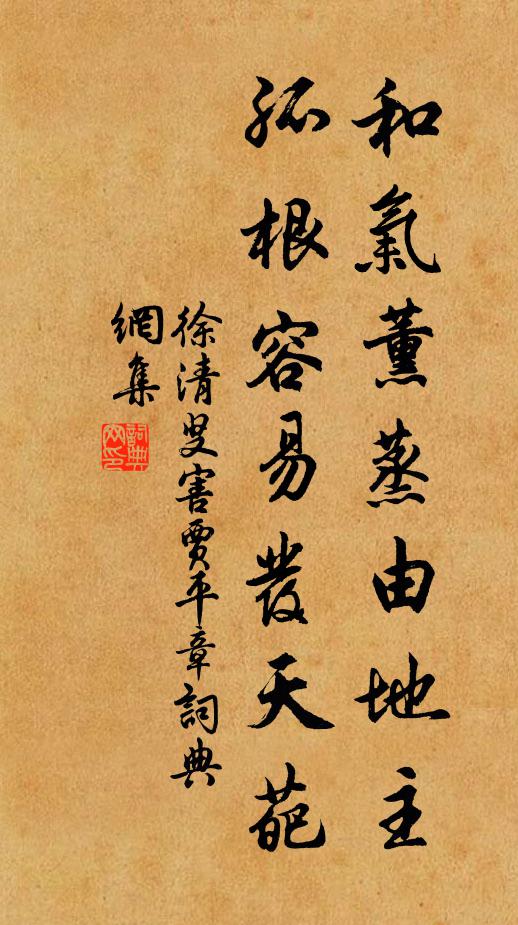 和氣薰蒸由地主
孤根容易發天葩
徐清叟害賈平章詞典
網集
詞典網印